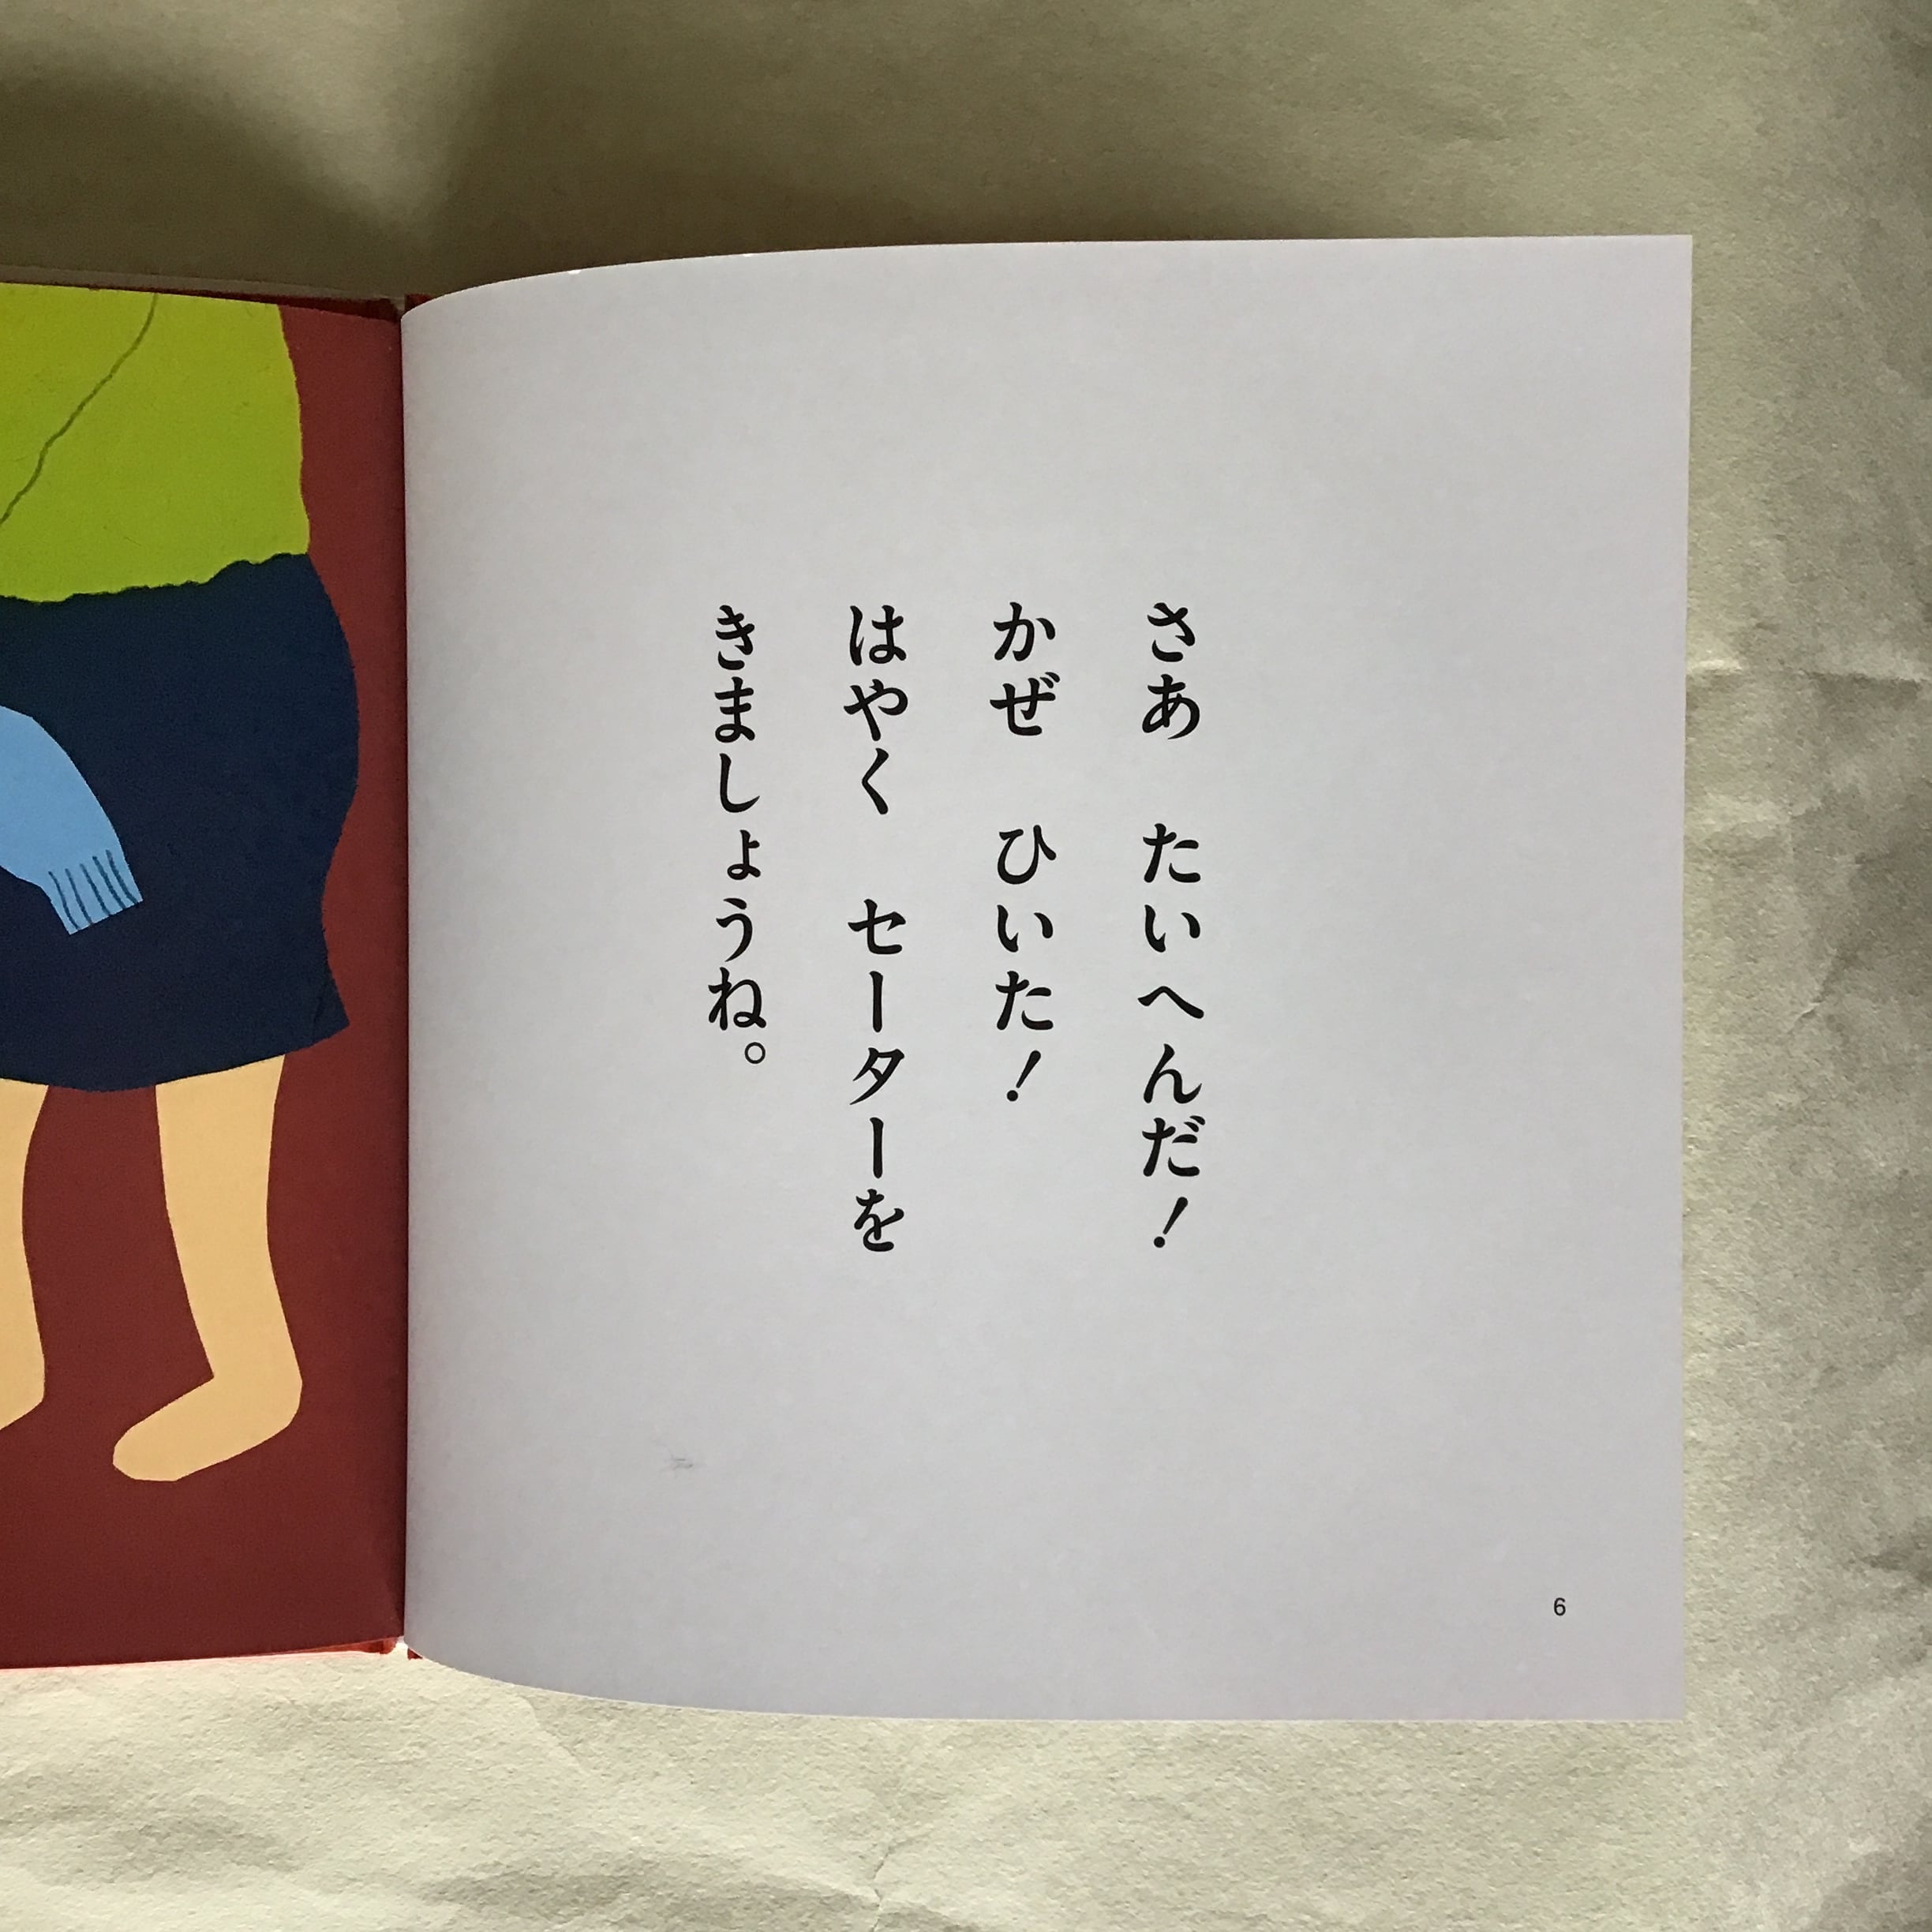 さあ　たいへんだ！
かぜ　ひいた！
はやく　セーターを
きましょうね。
6